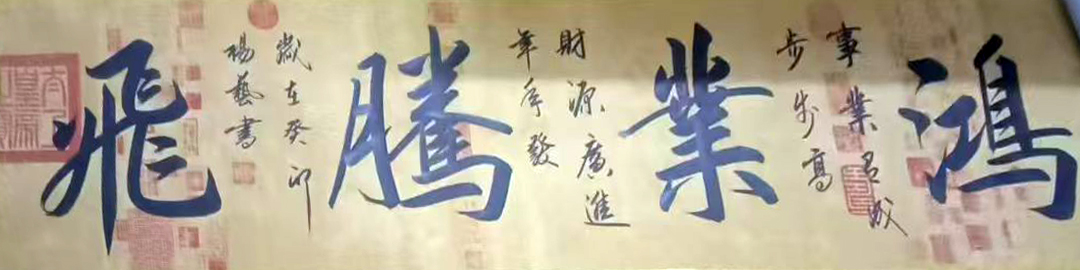 鴻
事業有成
步步高
業
財源廣進
年年發
騰
歲在癸卯
楊藝書
飛